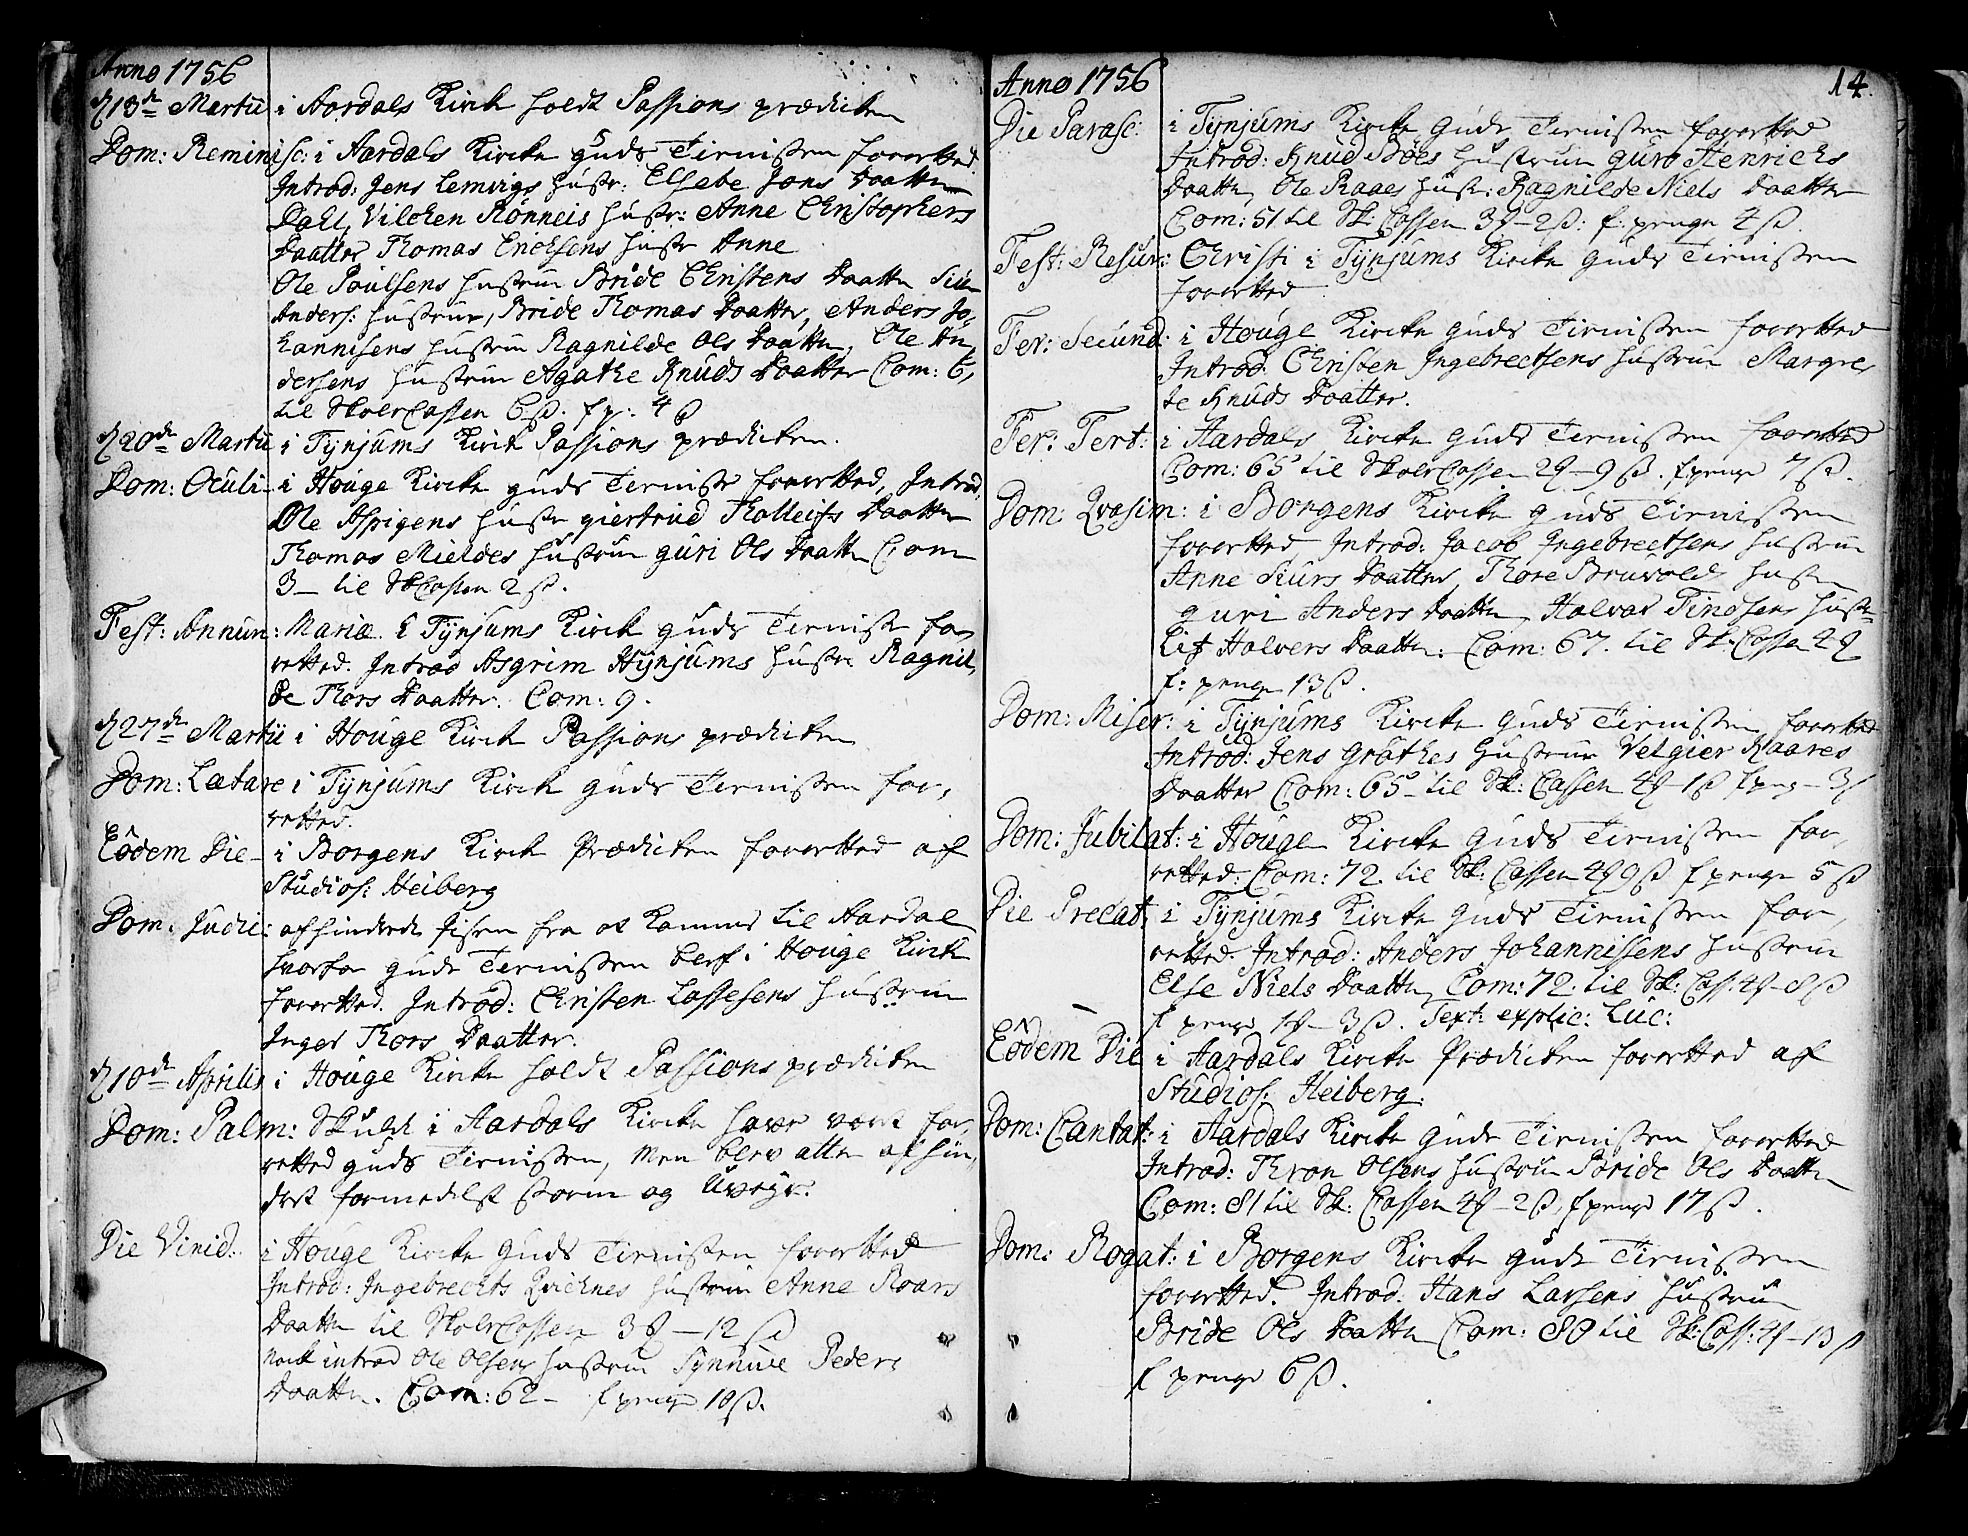 Anno 1756
d 13de Martii i Aardals Kirck holdt Passions prædicken
Dom: Reminisc: i Aardals Kircke guds Tienisten forretted
Introd: Jens Lemvigs hustr: Elsebe Jens Daatter
Dahl, Vilchen Rönneis hustr: Anne Christophers
Daatter Thomas Enochsens hustr Anne
Ole Poulsens hustrue Bride Christens Daatter Siur
Anders: hustrue, Bride Thomas Daatter, Anders Jo,
hannisens hustrue Ragnilde Ols Daatter, Ole An,
dersens hustrue Agathe Knuds Daatter Com: 6,
til SkoleCassen 6 ß. f p: 4 ß
d 20de Martii i Tynjums Kirck Passions prædicken.
Dom: Oculi i Houge Kircke guds Tieniste forretted, Introd,
Ole Aspigens hustr giertrud Tholleifs Daatter
Thomas Mieldes hustrue guri Ols Daatter Com
3 – til SkCassen 2 ß.
Fest: Annun: Mariæ i Tynjums Kirck guds Tieniste for,
retted. Introd Asgrim Hynjums hustru Ragnil,
de Thors Daatter. Com: 9.
d 27de Martii i Houge Kirck Passions prædicken
Dom: Lætare i Tynjums Kirck guds Tienisten for,
retted.
Eôdem Die – i Borgens Kirck Prædicken forretted af
Studios: Heiberg
Dom. Judic: afhindrede Jisen fra at komme til Aardal
hvorfor guds Tienisten blef i Houge Kirck
forretted. Introd: Christen Lassesens hustrue
Inger Thors Daatter.
d 10de Aprilis i Houge Kircke holdt Passions prædicken
Dom: Palm: Skulde i Aardals Kircke have vært for,
retted guds Tienisten, men blev atter afhin,
dret formedelst storm og Uveyr.
Die Virid: i Houge Kircke Guds Tienisten forretted
Introd: Ingebrechts Qvicknes hustrue Anne Roars
Daatter til SkoleCassen 3 # – 12 ß
Nock introd Ole Olsens hustrue Synnive Peders
Daatter. Com: 62 – f penge 10 ß.
Anno 1756
14.
Die Parasc: i Tynjums Kircke Guds Tienisten forretted
Introd: Knud Böes hustrue guro Henrichs
Daatter, Ole Raaes hustr: Ragnilde Niels Daatter
Com: 51 til Sk: Cassen 3 # – 2 ß: f: penge 4 ß.
Fest: Resur: Christi i Tynjums Kircke guds Tienisten
forretted
Fer: Secund: i Houge Kircke guds Tienisten forretted
Introd: Christen Ingebrectsens hustrue Margre,
te Knuds Daatter.
Fer: Tert: i Aardals Kircke Guds Tienisten forretted
Com: 65 til SkoleCassen 2 # – 9 ß. f penge 7 ß.
Dom: Qvasim: i Borgens Kircke guds Tienisten
forretted, Introd: Jacob Ingebrectsens hustrue
Anne Siurs Daatter, Thore Bruvolds hustru
guri Anders Daatter, Halvar Findsens hustr=
Lif Halvers Daatter. Com: 67. til Sk: Cassen 4 #
f: penge 13 ß.
Dom: Miser: i Tynjums Kircke Guds Tienisten forretted
Introd: Jens Gröthes hustrue Velgier Kaares
Daatter Com: 65 – til Sk: Cassen 4 # – 1 ß f peng – 3 ß
Dom: Jubilat: i Houge Kircke Guds Tienisten for,
retted: Com: 72. til Sk: Cassen 4 # 9 ß f penge 5 ß
Die Precat: i Tynjums Kircke Guds Tienisten for,
retted. Introd: Anders Johannissens hustrue
Else Niels Daatter, Com: 72. til Sk: Cass: 4 # – 8 ß
f penge 1 # – 3 ß. Text: explic: Luc:
Eôdem Die i Aardals Kircke Prædicken forrettet af
Studios: Heiberg.
Dom: Cantat: i Aardals Kircke Guds Tienisten forretted
Introd: Thron Olsens hustrue Bride Ols Daatter
Com: 81 til Sk: Cassen 4 # – 2 ß, f penge 17 ß.
Dom: Rogat: i Borgens Kircke guds Tienisten
forrettet. Introd: Hans Larsens hustrue
Bride Ols Daatter Com: 80 til Sk: Cass: 4 # – 13 ß
f penge 6 ß.